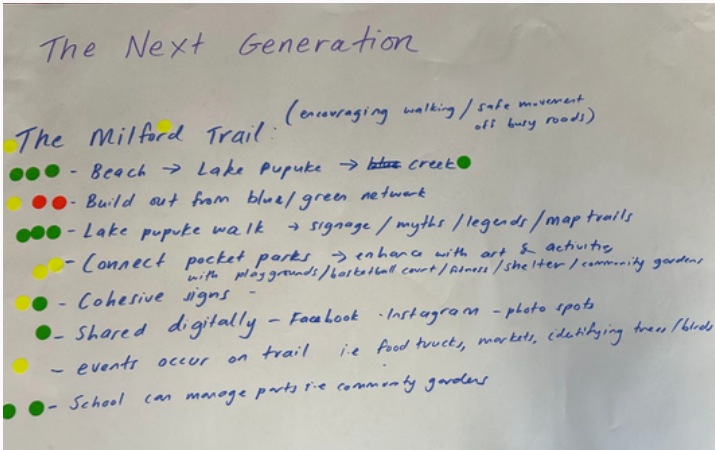 The Next Generation
(encouraging walking / safe movement
off busy roads)
The Milford Trail:
- Beach → Lake Pupuke → blue creek
- Build out from blue/green network
- Lake pupuke walk → signage / myths / legends / map trails
- Connect pocket parks → enhance with art & activities
with playgrounds / basketball court / fitness / shelter / community gardens
- Cohesive signs -
- Shared digitally - Facebook - Instagram - photo spots
- events occur on trail i.e food trucks, markets, identifying trees / birds
- School can manage parts i.e community gardens